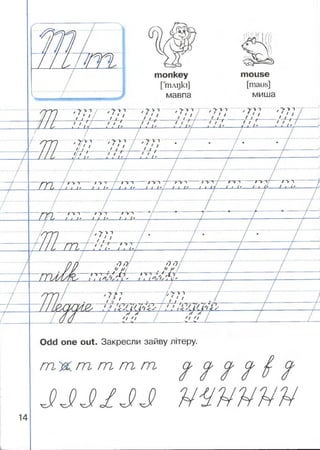 M m
monkey mouse
['mʌŋkɪ] [maus]
мавпа миша
M M M M M M M M
M M M M M
m m m m m m m m m
m m m m
M m M m
milk milk milk
Meggie Meggie Meggie
Odd one out. Закресли зайву літеру.
m x m m m m g g g g f g
I I I L I I H Y H H H H
14